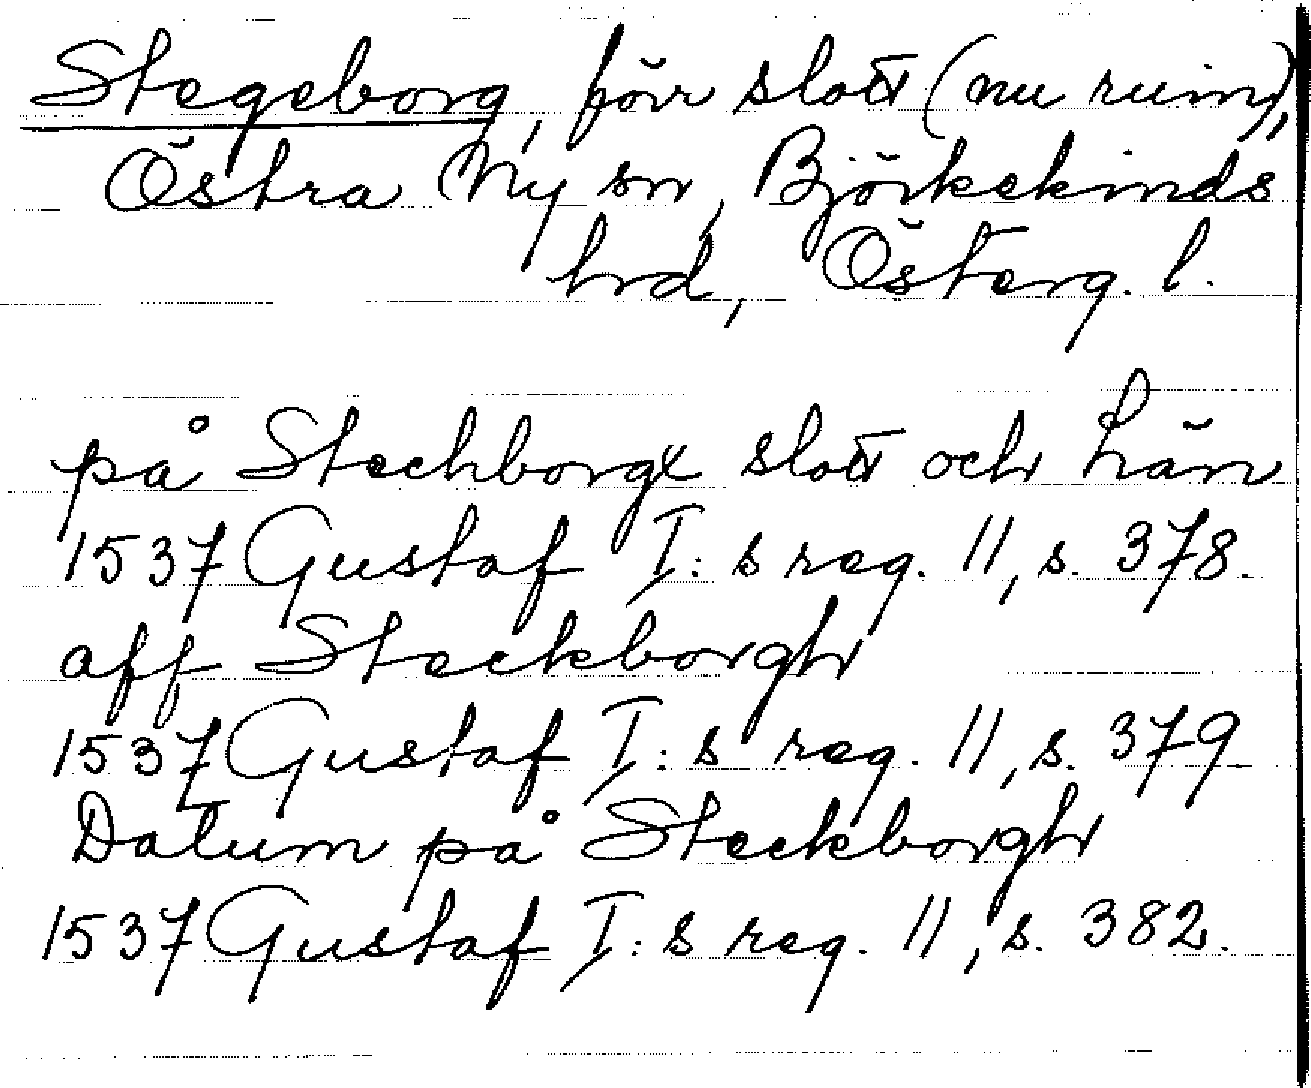 Stegeborg, förr slott (nu ruin),
Östra Ny sn, Björkekinds
hrd, Österg. l.
på Stechborgx slott och Län
1537 Gustaf I:s reg. 11, s. 378.
aff Steckborgh
1537 Gustaf I:s reg. 11, s. 379
Datum på Steckborgh
1537 Gustaf I:s reg. 11, s. 382.